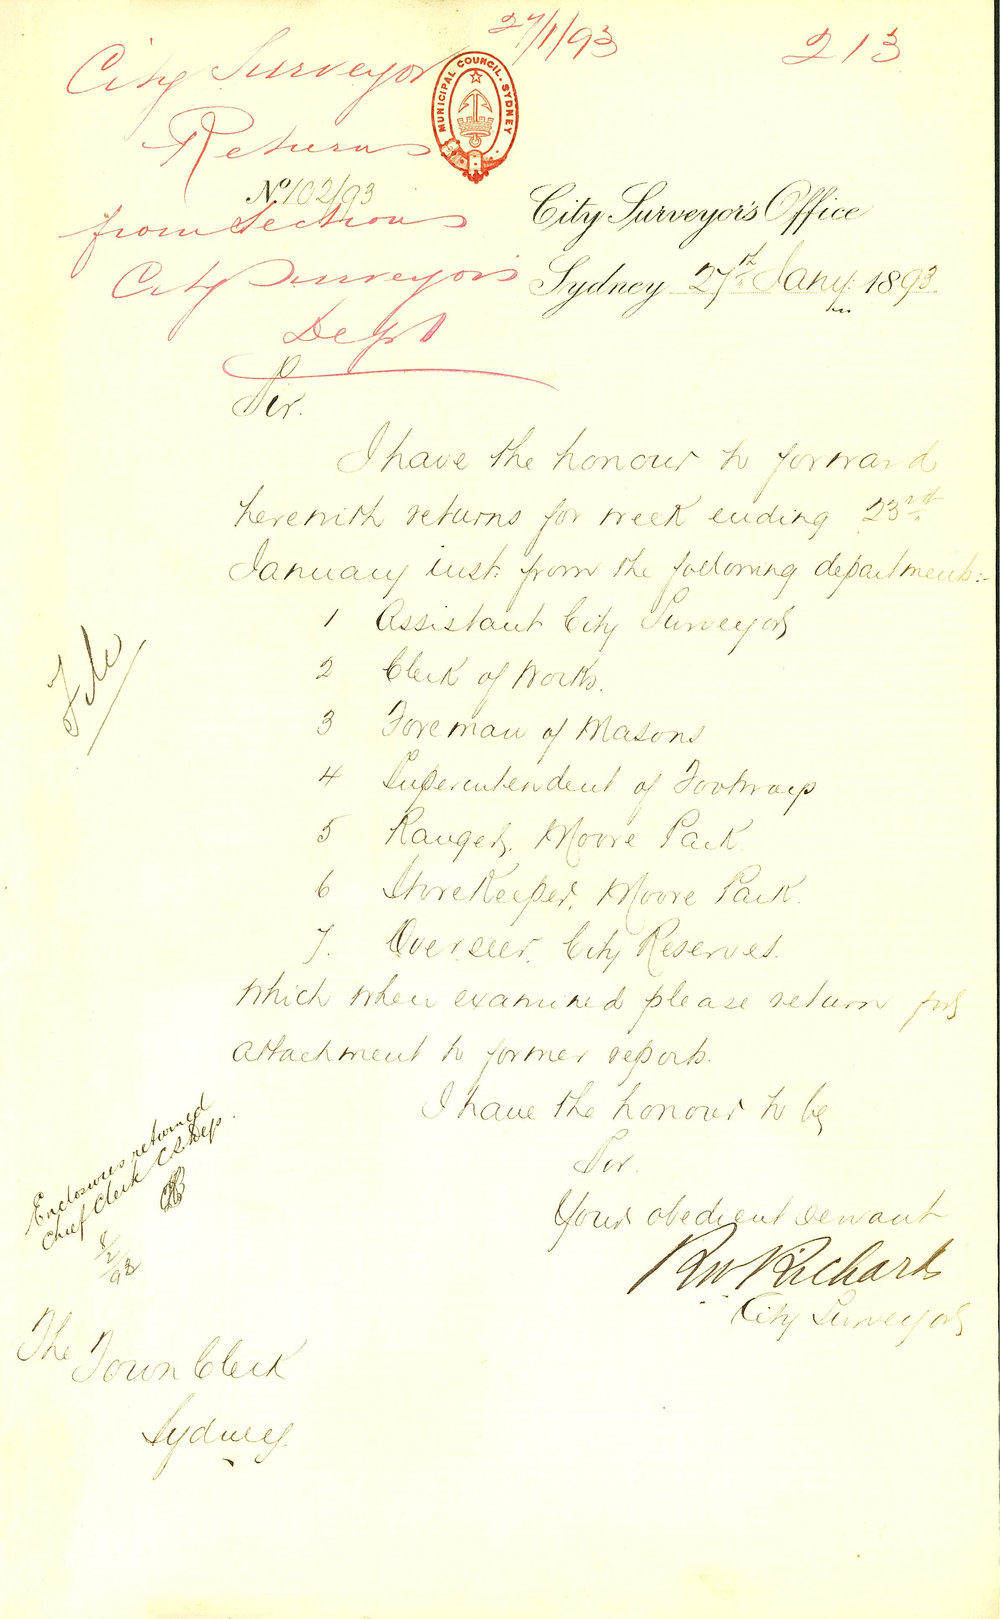 27/1/93
213
City Surveyor
Returns
from Sections
City Surveyor's
Dept
MUNICIPAL COUNCIL. SYDNEY
No 102/93
City Surveyor's Office
Sydney 27th Jany: 1893
Sir.
I have the honour to forward
herewith returns for week ending 23rd
January inst: from the following departments:-
1 Assistant City Surveyor
2 Clerk of Works.
3 Foreman of Masons
4 Superintendent of Footways
5 Ranger, Moore Park.
6 Storekeeper, Moore Park.
7. Overseer, City Reserves.
which when examined please return for
attachment to former reports.
I have the honour to be
Sir.
Your obedient servant
RW Richards
City Surveyor
File
Enclosures returned
Chief Clerk CS Dep
8/2/93
The Town Clerk
Sydney